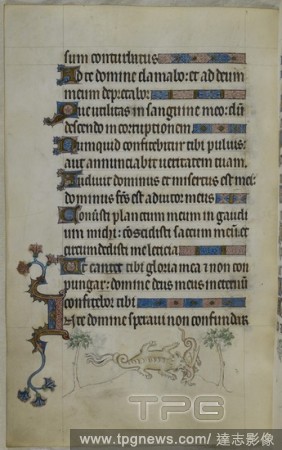 sum conturbatus
Ad te domine clamabo: et ad deum
meum dep̄cabo:
Que utilitas in sanguine meo: dū
descendo in corruptionem
Numquid confitebitur tibi puluis:
aut annunciabit ueritatem tuam.
Audiuit dominus et misertus est mei:
dominus fc̄s est adiutor meus
Conuertisti planctum meum in gaudi
um michi: cōscidisti saccum meū et
circumdedisti me leticia
Ut cantet tibi gloria mea et non con
pungar: domine deus meus in eternū
confitebor tibi
In te domine speraui non confundar
TPG
www.tpgnews.com / 達志影像